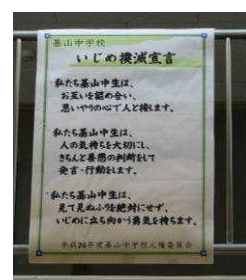 基山中学校
いじめ撲滅宣言
私たち基山中生は、
お互いを認め合い、
思いやりの心で人と接します。
私たち基山中生は、
人の気持ちを大切にし、
きちんと善悪の判断をして
発言・行動をします。
私たち基山中生は、
見て見ぬふりを絶対にせず、
いじめに立ち向かう勇気を持ちます。
平成26年度基山中学校人権委員会